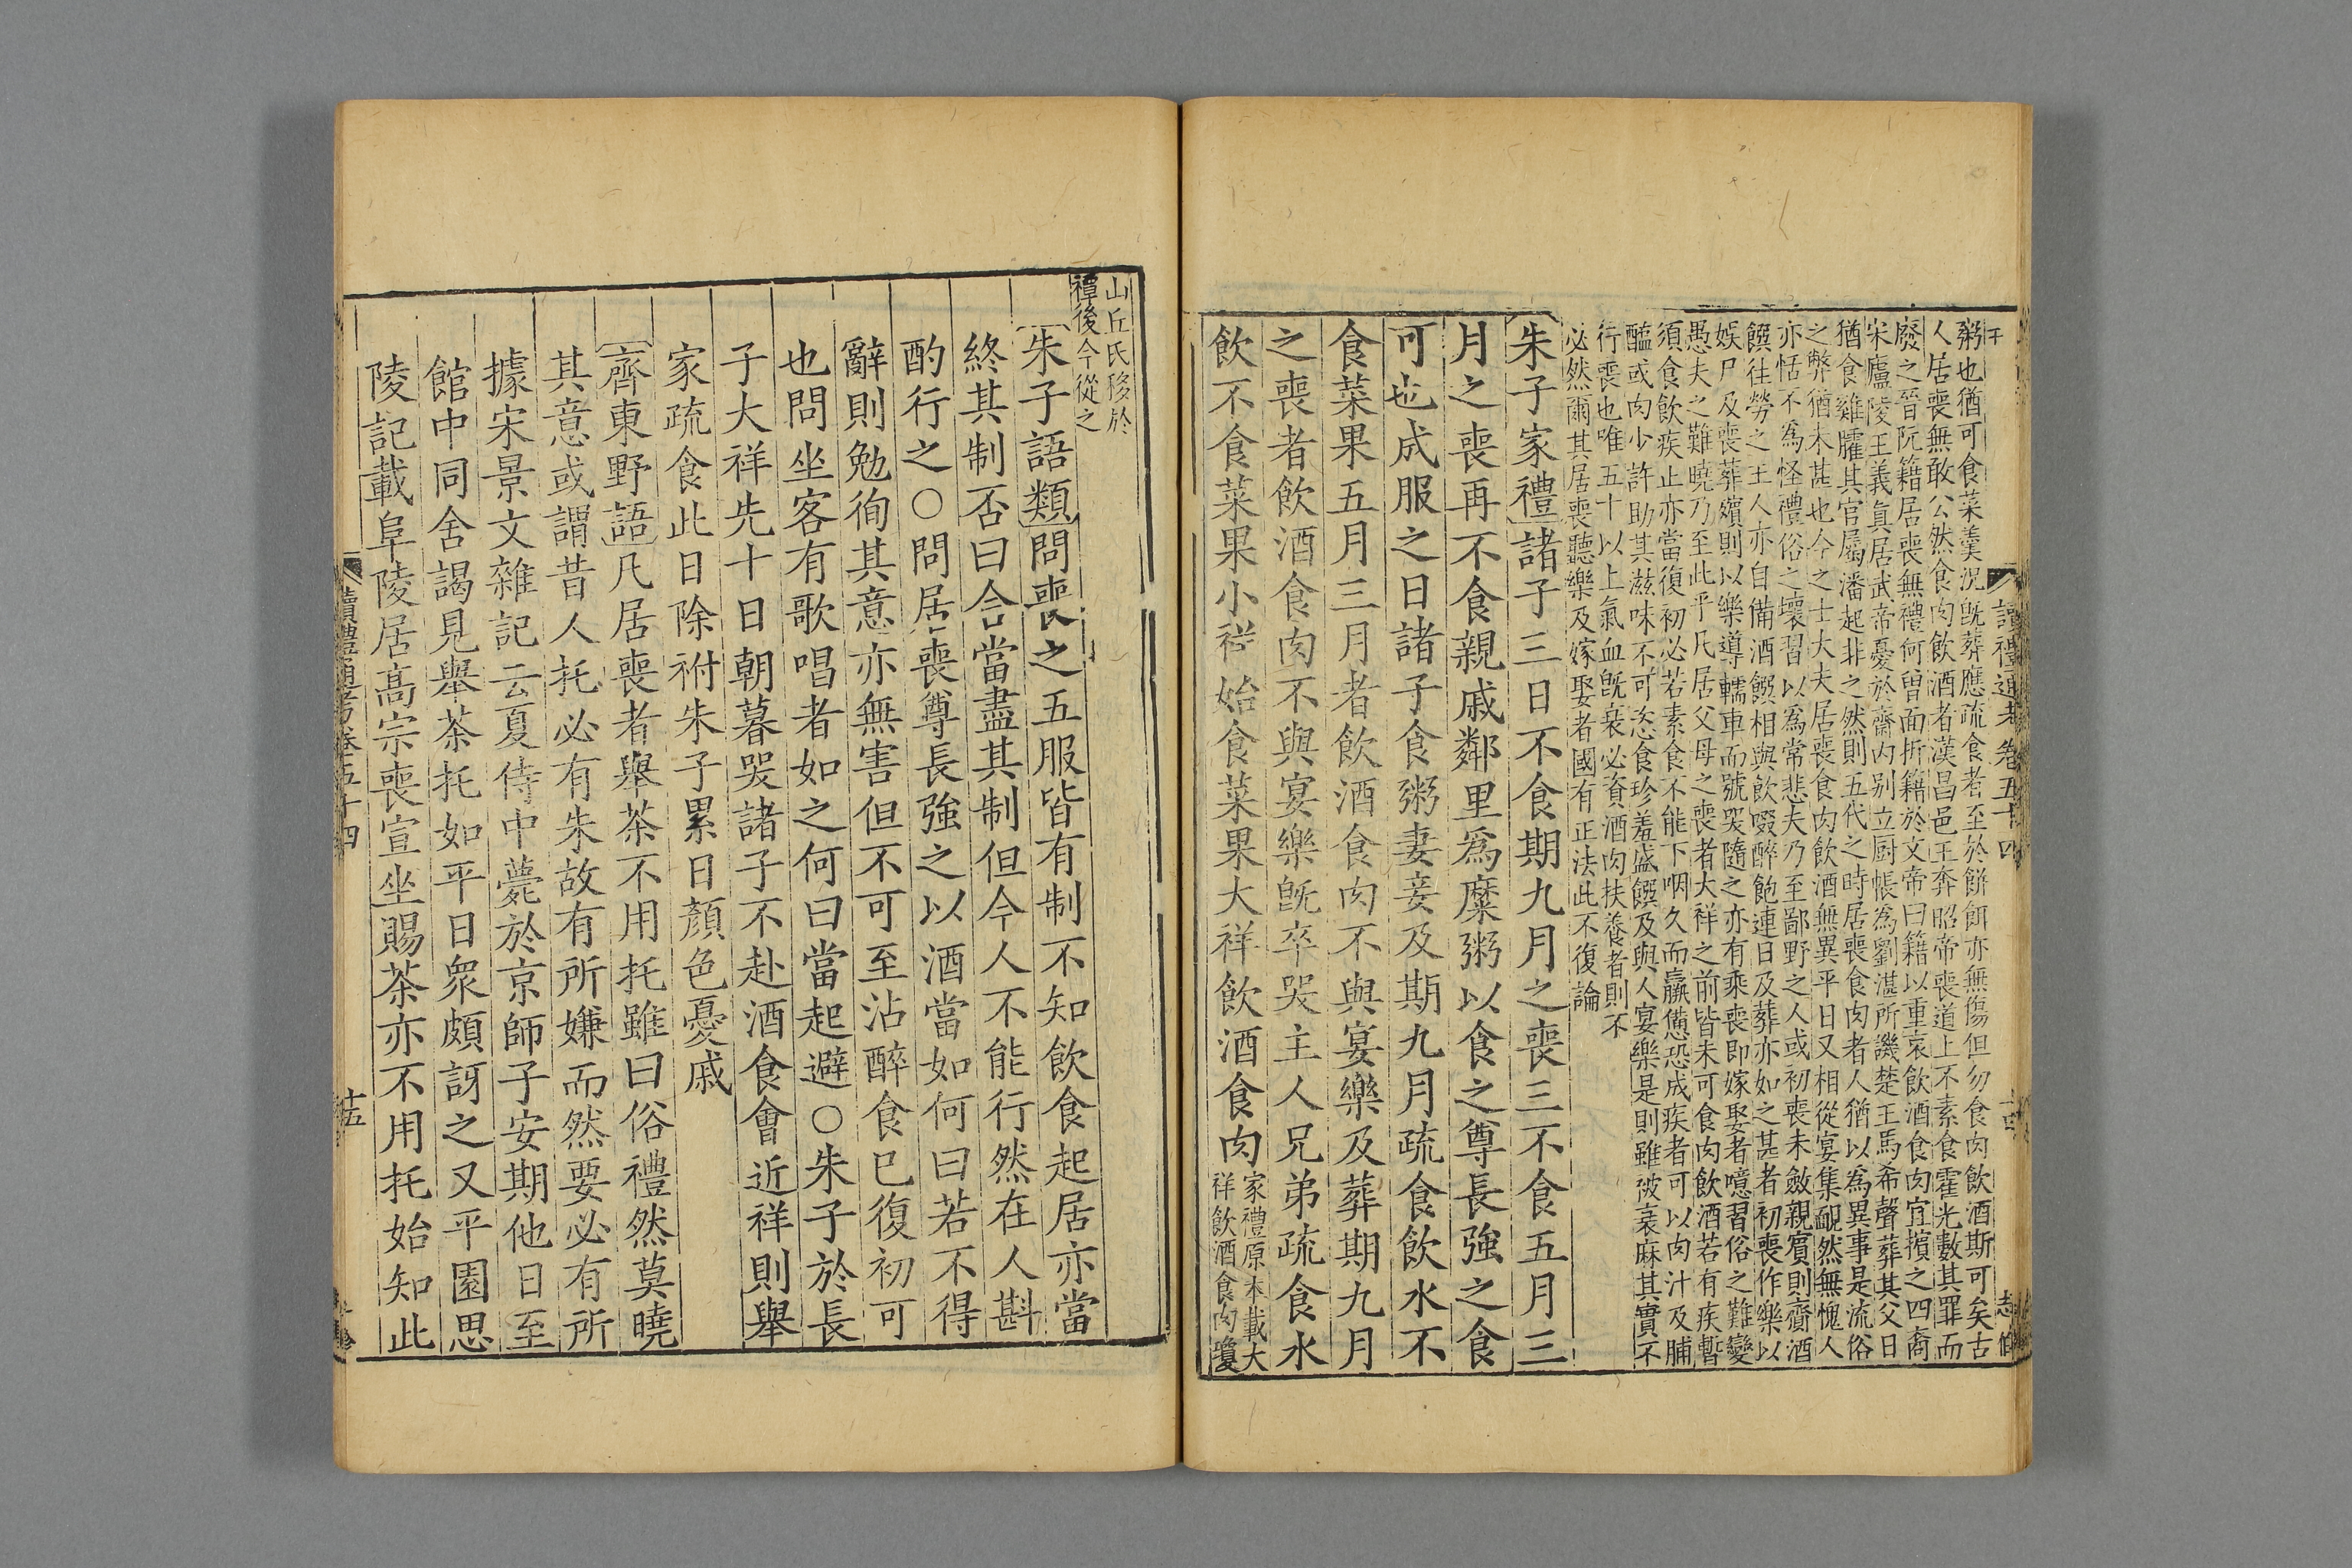 讀禮通考卷五十四
粥也猶可食菜羹況旣葬應疏食者至於餅餌亦無傷但勿食肉飲酒斯可矣古
人居喪無敢公然食肉飲酒者漢昌邑王奔昭帝喪道上不素食霍光數其罪而
廢之晉阮籍居喪無禮何曾面折籍於文帝曰籍以重哀飲酒食肉宜擯之四裔
宋廬陵王義眞居武帝憂於齋內别立厨帳爲劉湛所譏楚王馬希聲葬其父日
猶食雞臛其官屬潘起非之然則五代之時居喪食肉者人猶以爲異事是流俗
之弊猶未甚也今之士大夫居喪食肉飲酒無異平日又相從宴集靦然無愧人
亦恬不爲怪禮俗之壞習以爲常悲夫乃至鄙野之人或初喪未斂親賓則齎酒
饌往勞之主人亦自備酒饌相與飲啜醉飽連日及葬亦如之甚者初喪作樂以
娛尸及喪葬殯則以樂導轜車而號哭隨之亦有乘喪即嫁娶者噫習俗之難變
愚夫之難曉乃至此乎凡居父母之喪者大祥之前皆未可食肉飲酒若有疾暫
須食飲疾止亦當復初必若素食不能下咽久而羸憊恐成疾者可以肉汁及脯
醢或肉少許助其滋味不可恣食珍羞盛饌及與人宴樂是則雖被衰麻其實不
行喪也唯五十以上氣血旣衰必資酒肉扶養者則不
必然爾其居喪聽樂及嫁娶者國有正法此不復論
朱子家禮諸子三日不食期九月之喪三不食五月三
月之喪再不食親戚鄰里爲糜粥以食之尊長強之食
可也成服之日諸子食粥妻妾及期九月疏食飲水不
食菜果五月三月者飲酒食肉不與宴樂及葬期九月
之喪者飲酒食肉不與宴樂旣卒哭主人兄弟疏食水
飲不食菜果小祥始食菜果大祥飲酒食肉家禮原本載大
祥飲酒食肉瓊
山丘氏移於
禫後今從之
朱子語類問喪之五服皆有制不知飲食起居亦當
終其制否曰合當盡其制但今人不能行然在人斟
酌行之○問居喪尊長強之以酒當如何曰若不得
辭則勉徇其意亦無害但不可至沾醉食已復初可
也問坐客有歌唱者如之何曰當起避○朱子於長
子大祥先十日朝暮哭諸子不赴酒食會近祥則舉
家疏食此日除祔朱子累日顏色憂戚
齊東野語凡居喪者舉茶不用托雖曰俗禮然莫曉
其意或謂昔人托必有朱故有所嫌而然要必有所
據宋景文雜記云夏侍中薨於京師子安期他日至
館中同舍謁見舉茶托如平日衆頗訝之又平園思
陵記載阜陵居高宗喪宣坐賜茶亦不用托始知此
讀禮通考卷五十四
十五